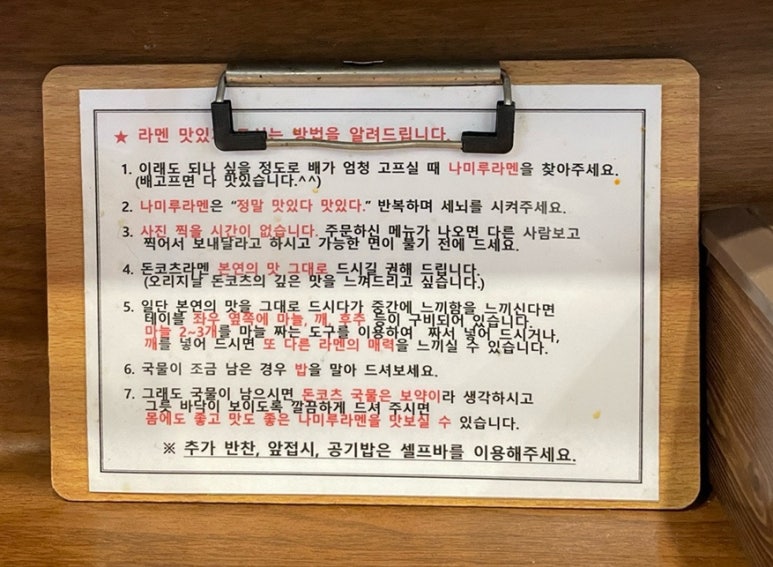 ★ 라멘 맛있게 드시는 방법을 알려드립니다.
1. 이래도 되나 싶을 정도로 배가 엄청 고프실 때 나미루라멘을 찾아주세요.
(배고프면 다 맛있습니다.^^)
2. 나미루라멘은 “정말 맛있다 맛있다.” 반복하며 세뇌를 시켜주세요.
3. 사진 찍을 시간이 없습니다. 주문하신 메뉴가 나오면 다른 사람보고
찍어서 보내달라고 하시고 가능한 면이 불기 전에 드세요.
4. 돈코츠라멘 본연의 맛 그대로 드시길 권해 드립니다.
(오리지날 돈코츠의 깊은 맛을 느껴드리고 싶습니다.)
5. 일단 본연의 맛을 그대로 드시다가 중간에 느끼함을 느끼신다면
테이블 좌우 옆쪽에 마늘, 깨, 후추 등이 구비되어 있습니다.
마늘 2~3개를 마늘 짜는 도구를 이용하여 짜서 넣어 드시거나,
깨를 넣어 드시면 또 다른 라멘의 매력을 느끼실 수 있습니다.
6. 국물이 조금 남은 경우 밥을 말아 드셔보세요.
7. 그래도 국물이 남으시면 돈코츠 국물은 보약이라 생각하시고
그릇 바닥이 보이도록 깔끔하게 드셔 주시면
몸에도 좋고 맛도 좋은 나미루라멘을 맛보실 수 있습니다.
※ 추가 반찬, 앞접시, 공기밥은 셀프바를 이용해주세요.